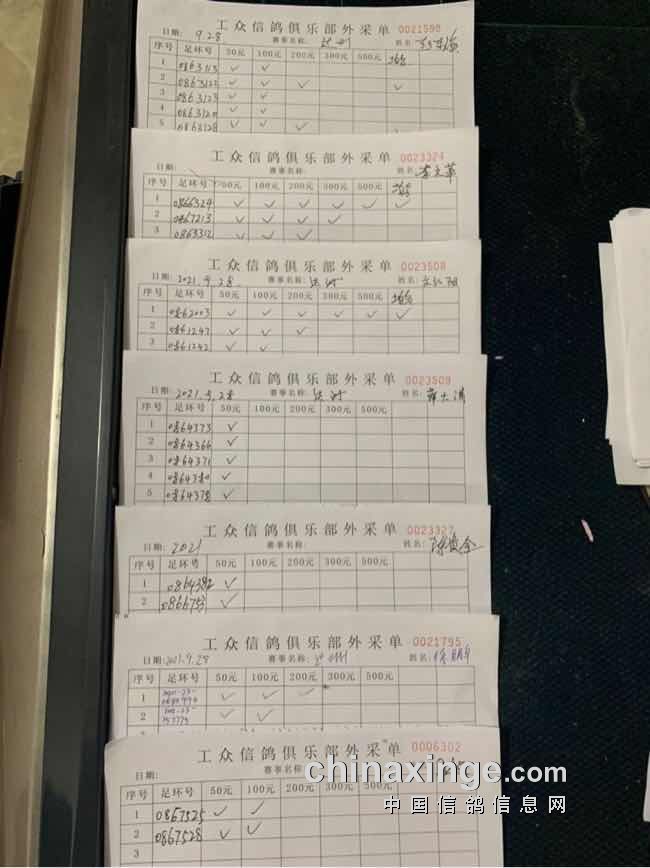 工众信鸽俱乐部外采单 0021598
日期: 9.28 赛事名称: 姓名:
序号 足环号 50元 100元 200元 300元 500元
1 0863113 ✓ ✓
2 0863125 ✓ ✓ ✓ ✓
3 0863123 ✓ ✓
4 0863120 ✓ ✓
5 0863128 ✓ ✓ ✓
工众信鸽俱乐部外采单 0023324
日期: 赛事名称: 姓名:
序号 足环号 50元 100元 200元 300元 500元
1 0866324 ✓ ✓ ✓ ✓ ✓ ✓
2 0867213 ✓ ✓ ✓ ✓
3 0863312 ✓ ✓ ✓
工众信鸽俱乐部外采单 0023508
日期: 2021.9.28. 赛事名称: 达州 姓名:
序号 足环号 50元 100元 200元 300元 500元
1 0862003 ✓ ✓ ✓ ✓ ✓ ✓
2 0861247 ✓ ✓ ✓
3 0861242 ✓ ✓
工众信鸽俱乐部外采单 0023509
日期: 2021.9.28 赛事名称: 达州 姓名:
序号 足环号 50元 100元 200元 300元 500元
1 0864373 ✓
2 0864366 ✓
3 0864371 ✓
4 0864380 ✓
5 0864378 ✓
工众信鸽俱乐部外采单 0023327
日期: 2021 赛事名称: 姓名:
序号 足环号 50元 100元 200元 300元 500元
1 0864382 ✓
2 0866753 ✓
工众信鸽俱乐部外采单 0021795
日期: 2021.9.28 赛事名称: 达州 姓名:
序号 足环号 50元 100元 200元 300元 500元
1 ✓ ✓ ✓
2 ✓ ✓
工众信鸽俱乐部外采单 0006302
日期: 赛事名称:
序号 足环号 50元 100元 200元 300元 500元
1 0867525 ✓ ✓
2 0867528 ✓ ✓
3
chinaxinge.com
中国信鸽信息网